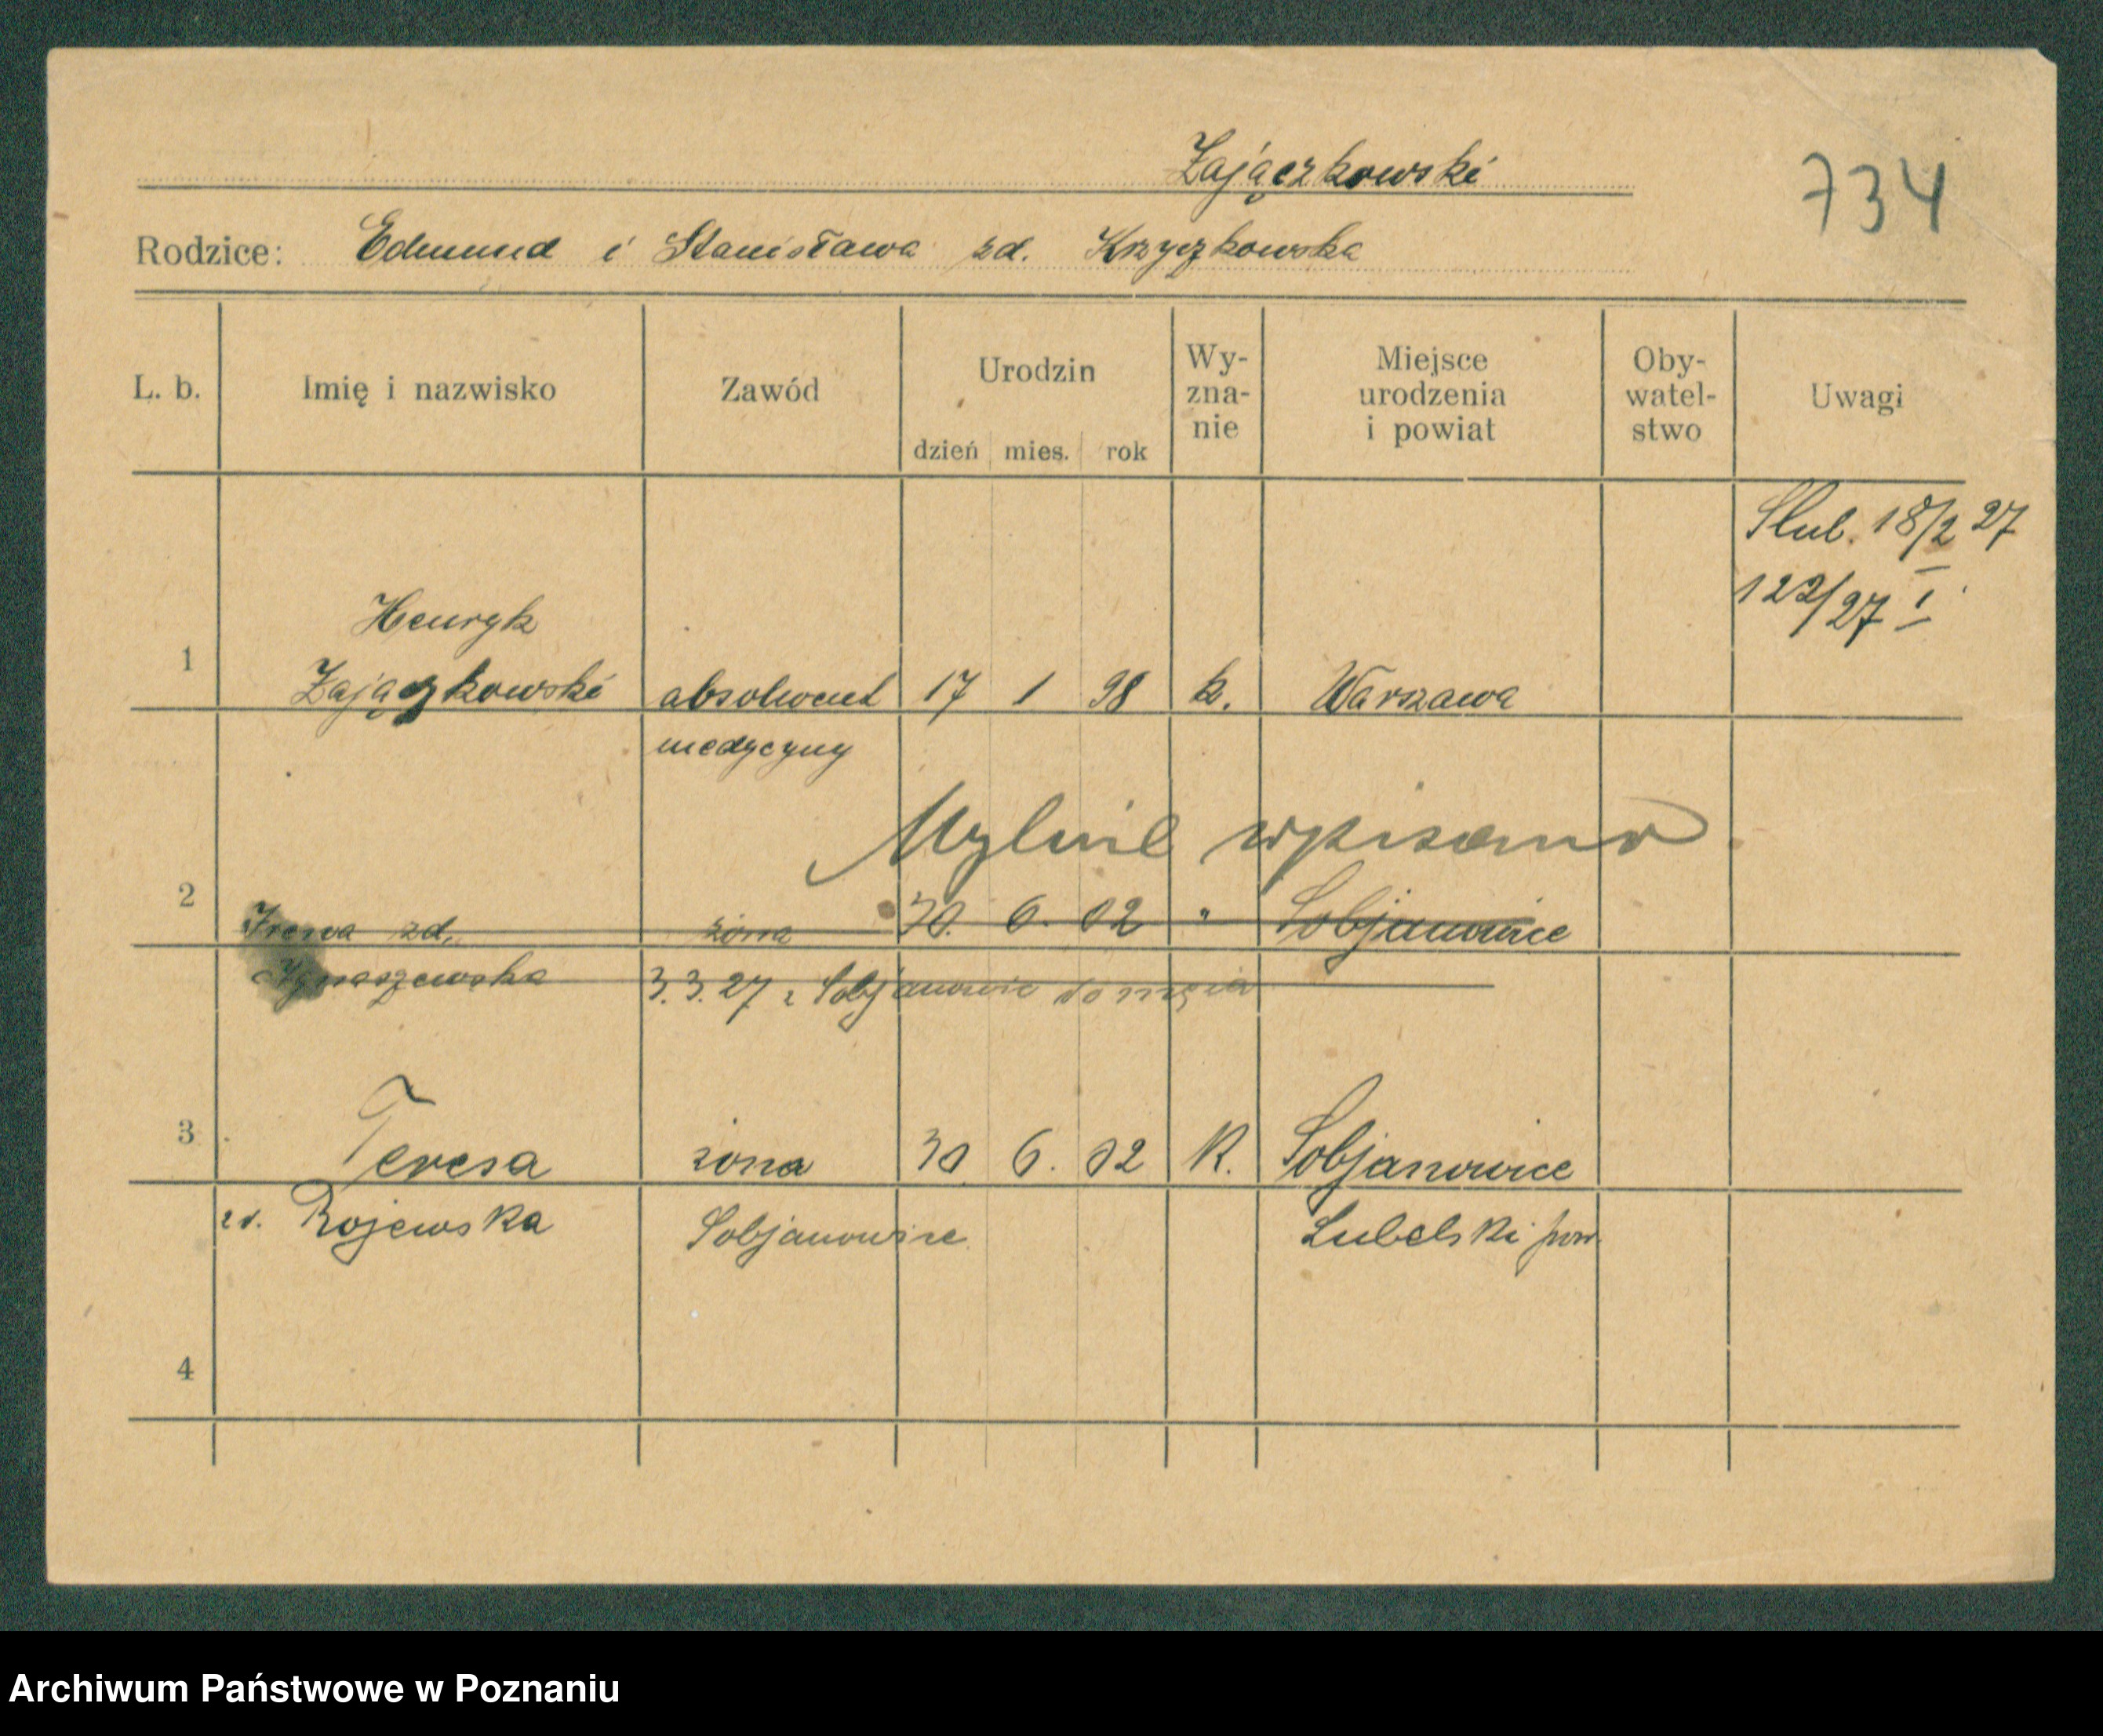 Zajączkowski
734
Rodzice: Edmund i Stanisława zd. Krzyczkowska
L. b. Imię i nazwisko Zawód Urodzin dzień mies. rok Wy-zna-nie Miejsce urodzenia i powiat Oby-watel-stwo Uwagi
Slub. 18/2 27
122/27 I
Henryk
1 Zajączkowski absolwent 17 1 98 k. Warszawa
medycyny
Mylnie wpisano
2 Irena zd. żona 30. 6. 02 " Sobjanowice
Ignaszewska 3.3.27 z Sobjanowic do męża
3 Teresa żona 30 6. 02 K. Sobjanowice
zd. Rojewska Sobjanowice Lubelski pow.
4
Archiwum Państwowe w Poznaniu